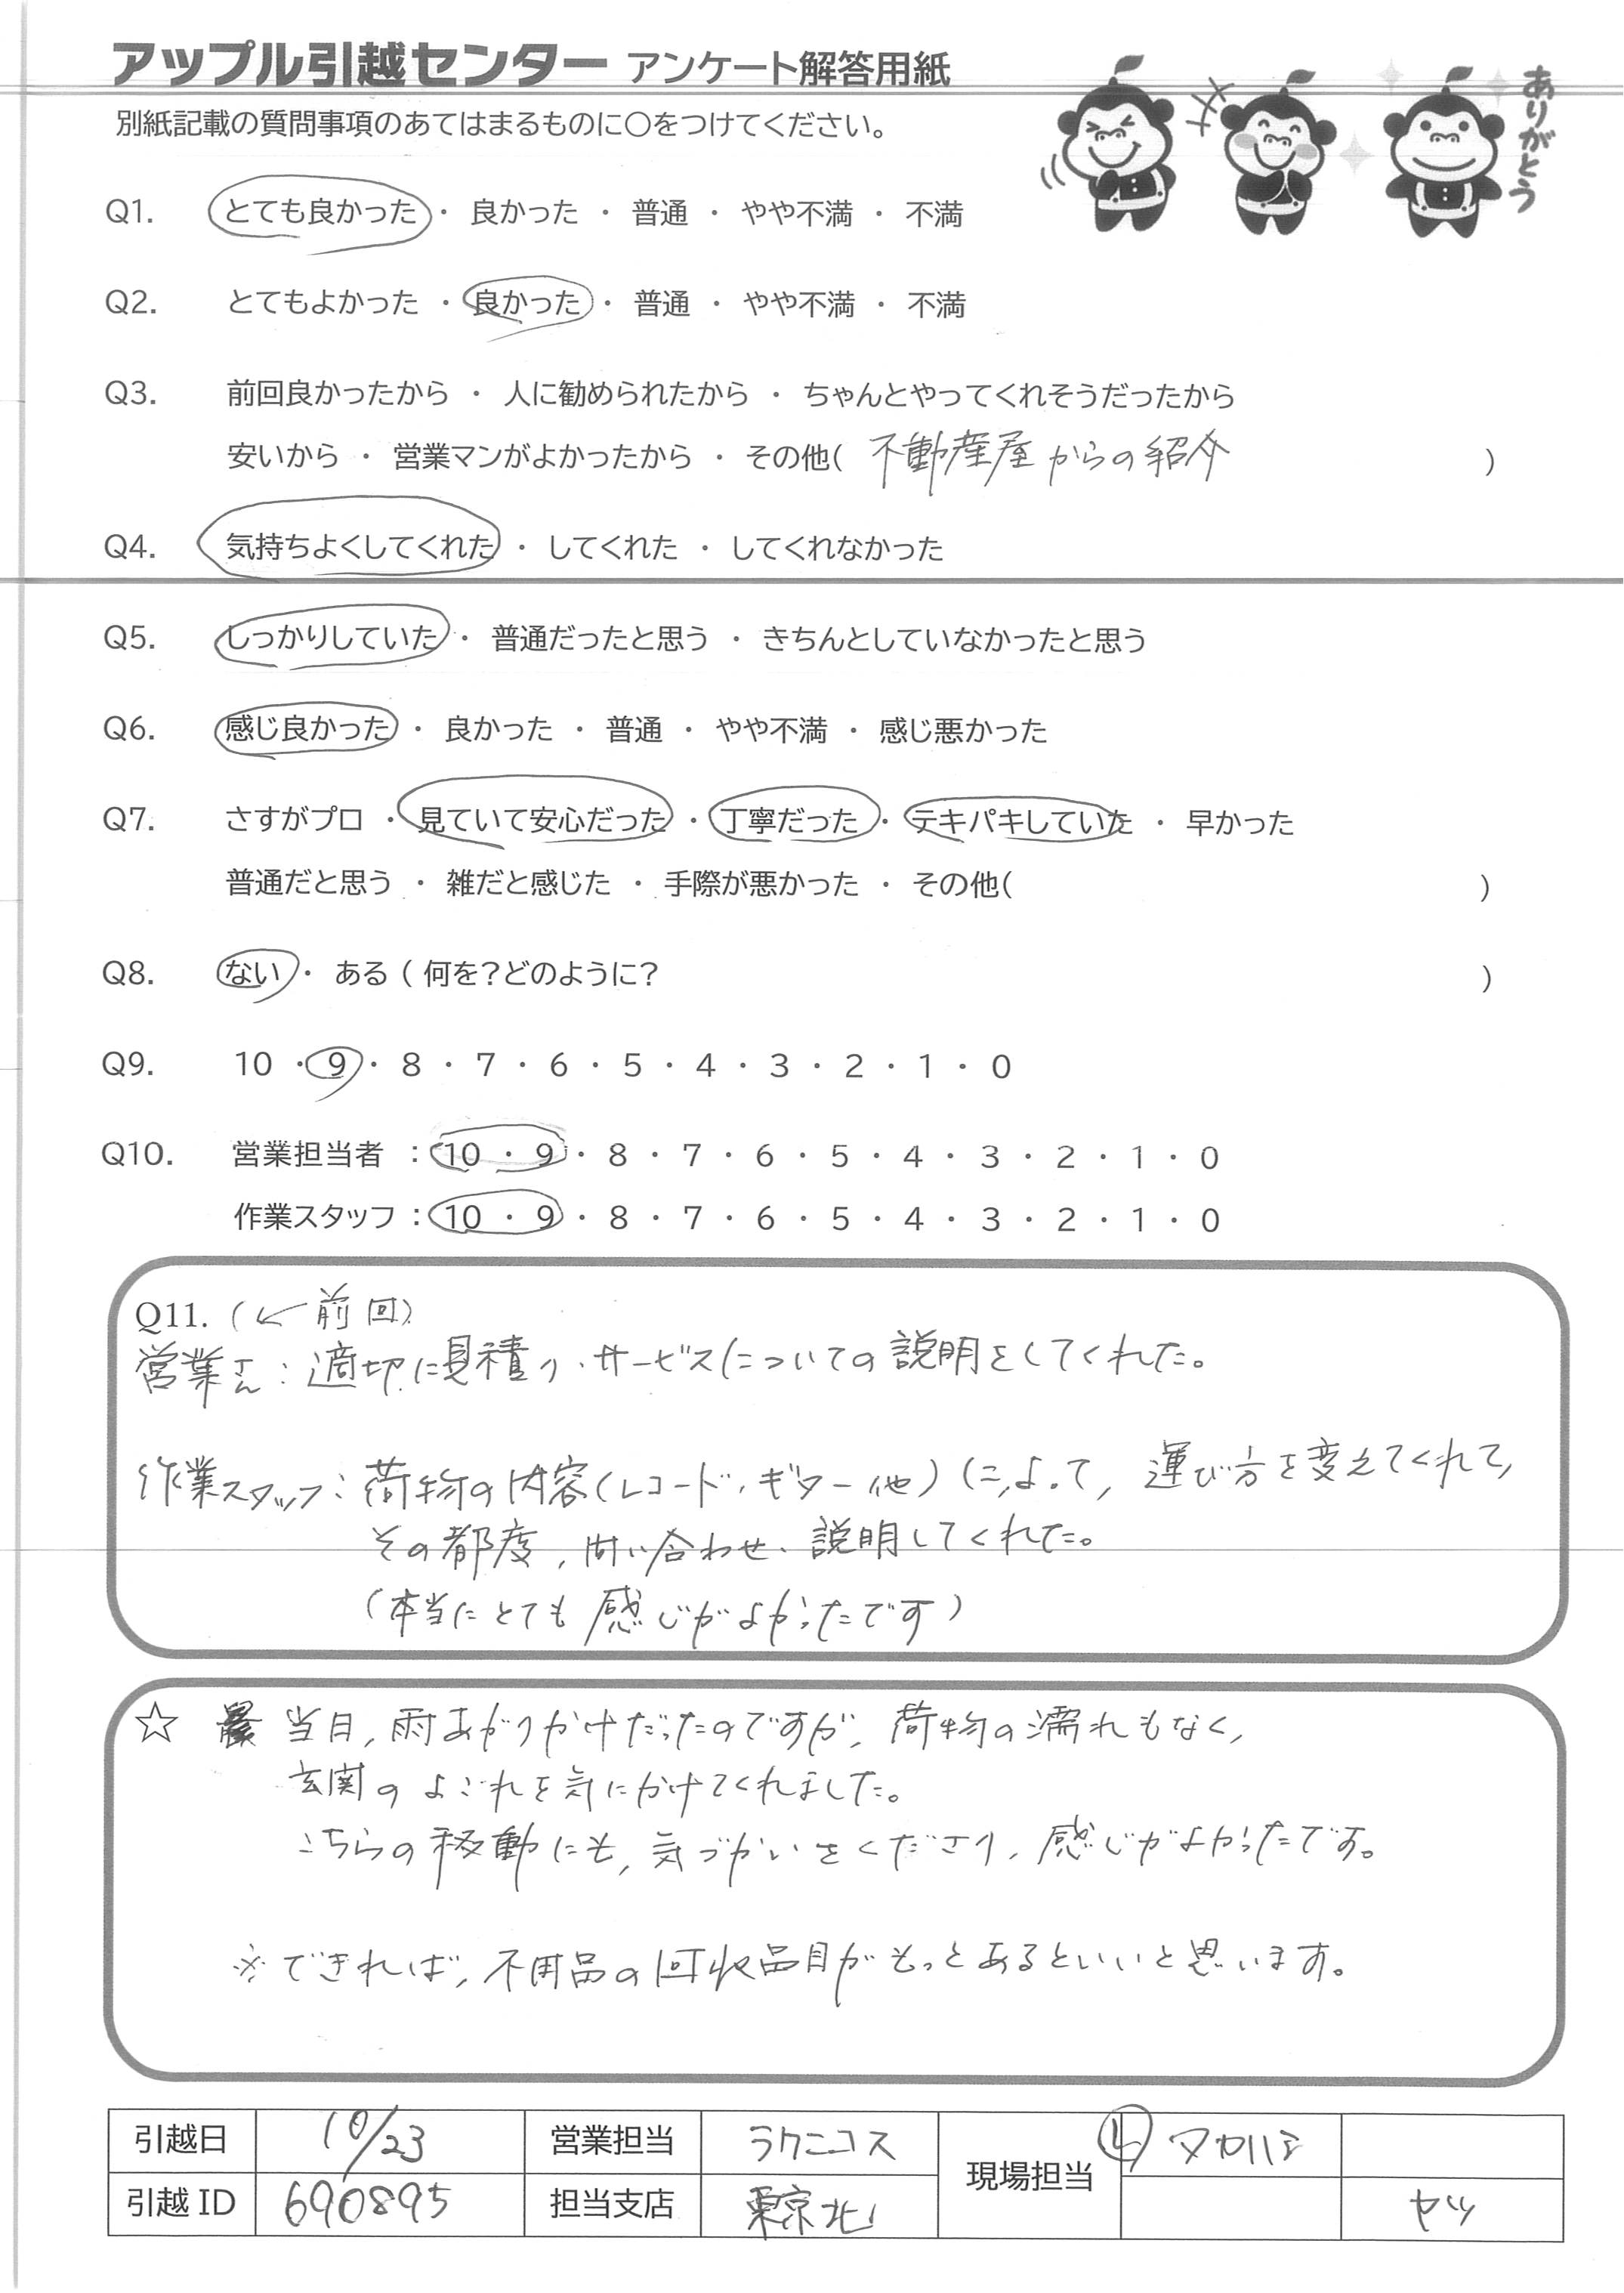 アップル引越センター アンケート解答用紙
別紙記載の質問事項のあてはまるものに〇をつけてください。
ありがとう
Q1. とても良かった ・ 良かった ・ 普通 ・ やや不満 ・ 不満
Q2. とてもよかった ・ 良かった ・ 普通 ・ やや不満 ・ 不満
Q3. 前回良かったから ・ 人に勧められたから ・ ちゃんとやってくれそうだったから
安いから ・ 営業マンがよかったから ・ その他( 不動産屋からの紹介 )
Q4. 気持ちよくしてくれた ・ してくれた ・ してくれなかった
Q5. しっかりしていた ・ 普通だったと思う ・ きちんとしていなかったと思う
Q6. 感じ良かった ・ 良かった ・ 普通 ・ やや不満 ・ 感じ悪かった
Q7. さすがプロ ・ 見ていて安心だった ・ 丁寧だった ・ テキパキしていた ・ 早かった
普通だと思う ・ 雑だと感じた ・ 手際が悪かった ・ その他( )
Q8. ない ・ ある ( 何を?どのように? )
Q9. 10 ・ 9 ・ 8 ・ 7 ・ 6 ・ 5 ・ 4 ・ 3 ・ 2 ・ 1 ・ 0
Q10. 営業担当者 : 10 ・ 9 ・ 8 ・ 7 ・ 6 ・ 5 ・ 4 ・ 3 ・ 2 ・ 1 ・ 0
作業スタッフ : 10 ・ 9 ・ 8 ・ 7 ・ 6 ・ 5 ・ 4 ・ 3 ・ 2 ・ 1 ・ 0
Q11. (← 前回)
営業さん : 適切に見積り、サービスについての説明をしてくれた。
作業スタッフ : 荷物の内容(レコード、ギター他)によって、運び方を変えてくれて、
その都度、問い合わせ、説明してくれた。
(本当にとても感じがよかったです)
☆ 当日、雨あがりかけだったのですが、荷物の濡れもなく、
玄関のよごれを気にかけてくれました。
こちらの移動にも、気づかいをくださり、感じがよかったです。
※できれば、不用品の回収品目がもっとあるといいと思います。
引越日 10/23 営業担当 ラクニコス 現場担当 Ⓛ
引越ID 690895 担当支店 東京北 ヤツ